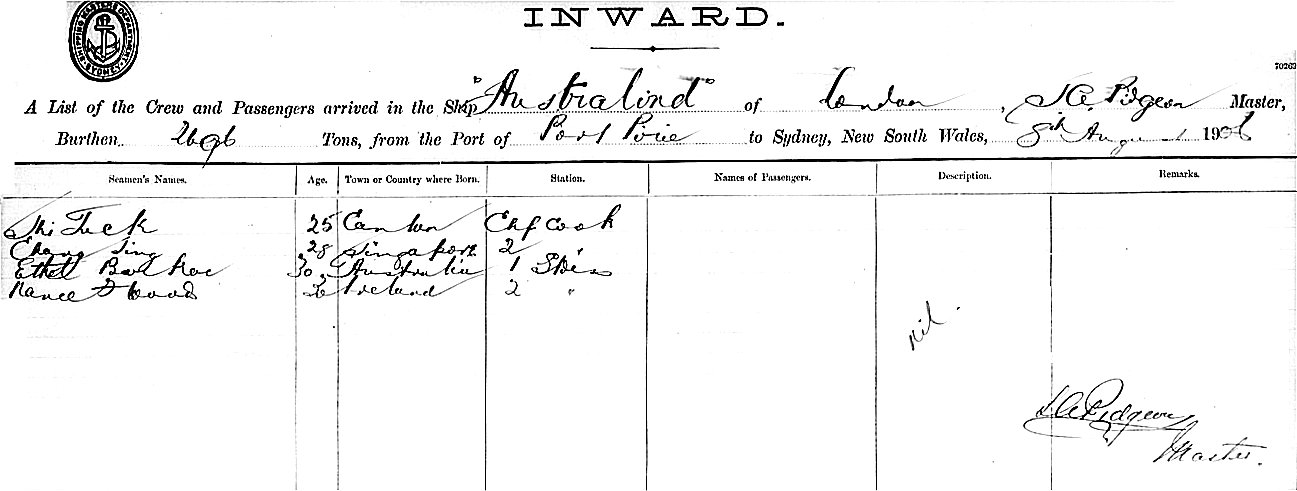 SHIPPING MASTERS DEPARTMENT SYDNEY
INWARD.
70263
A List of the Crew and Passengers arrived in the Ship "Australind" of London, Pidgeon Master,
Burthen 2696 Tons, from the Port of Port Pirie to Sydney, New South Wales, 8th August 190
Seamen's Names. Age. Town or Country where Born. Station. Names of Passengers. Description. Remarks.
Tuck 25 Canton Chf Cook
Chang Sing 28 Singapore 2
Ethel 30 Australia 1 Stess
26 Ireland 2 "
nil.
Pidgeon
Master.